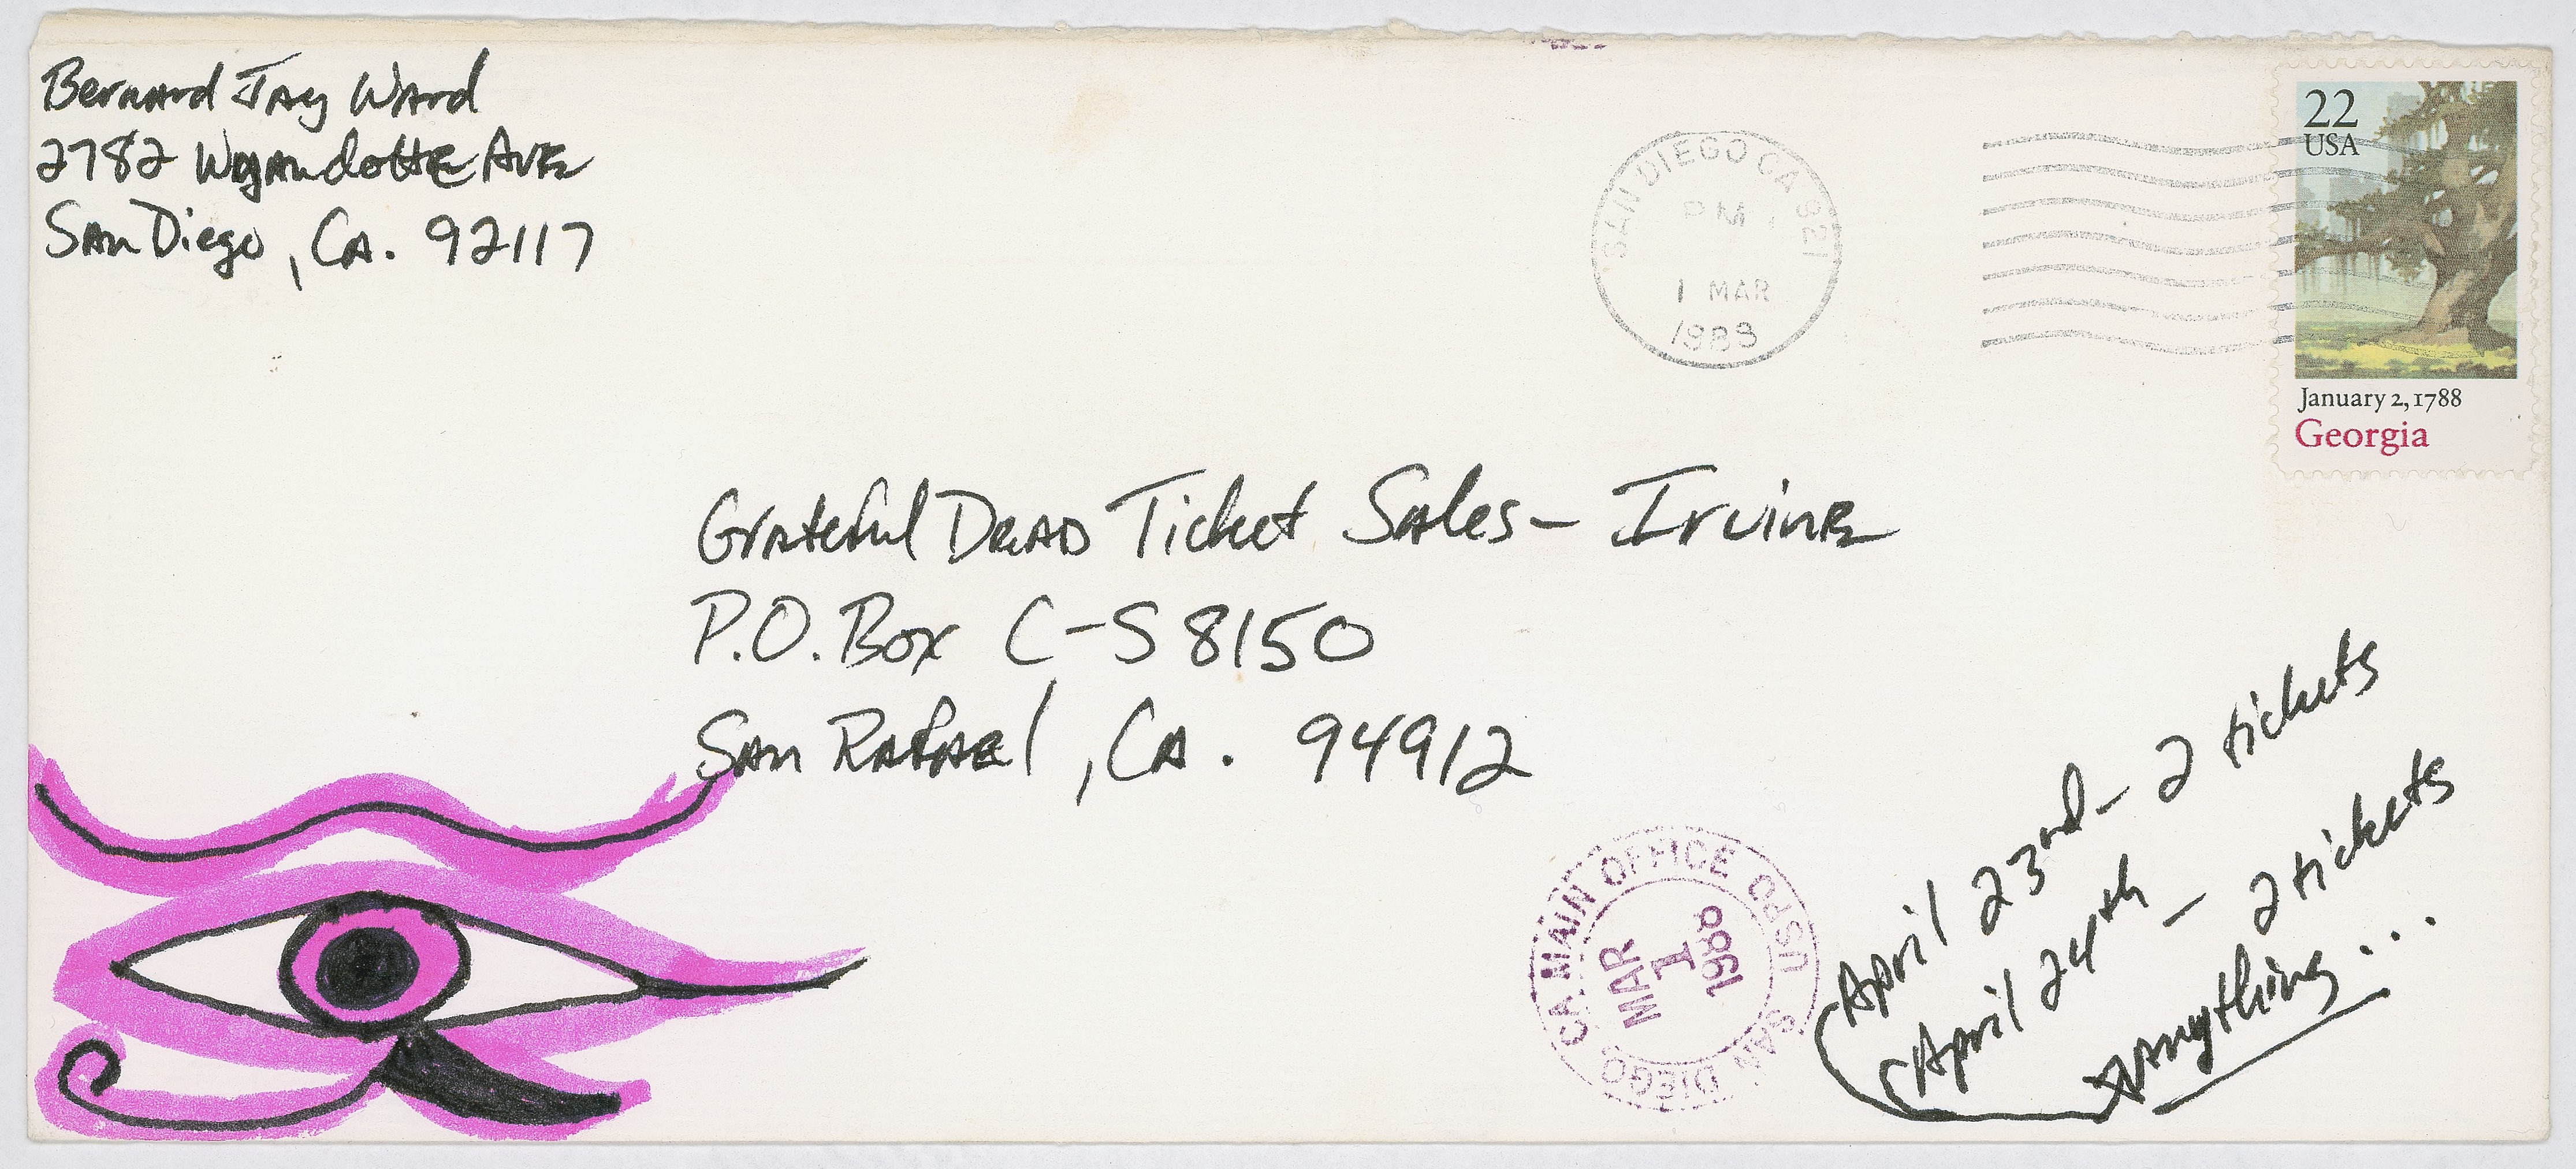 Bernard Jay Ward
2782 Wyandotte Ave
San Diego, Ca. 92117
SAN DIEGO CA 921
PM
1 MAR
1988
22
USA
January 2, 1788
Georgia
Grateful Dead Ticket Sales - Irvine
P.O. Box C-S 8150
San Rafael, Ca. 94912
SAN DIEGO, CA MAIN OFFICE USPO
MAR
1
1988
April 23rd - 2 tickets
April 24th - 2 tickets
anything...